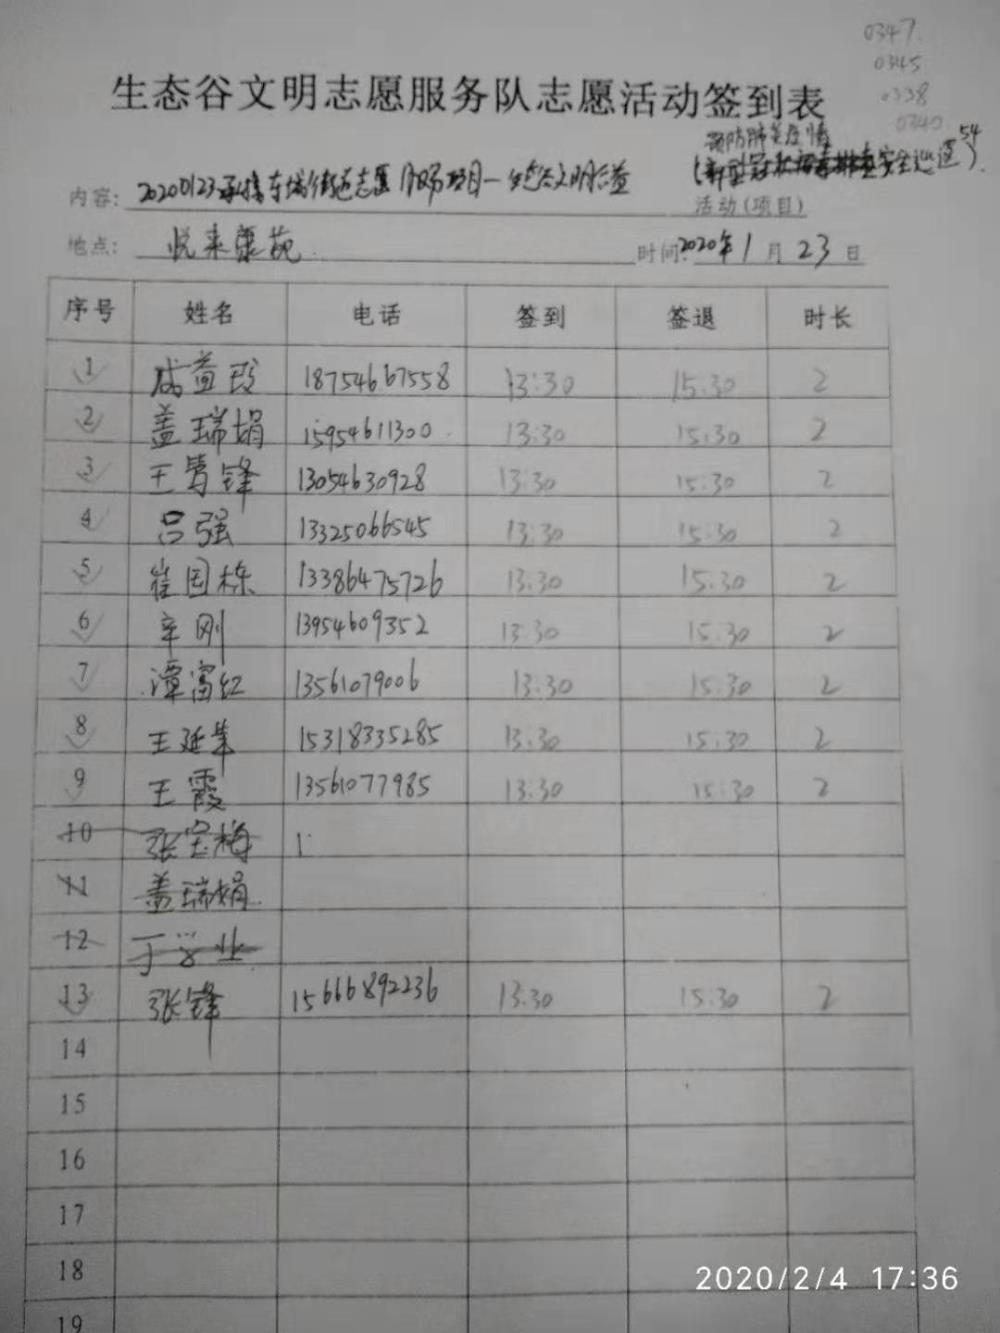 0347.
0345
0338
0340
生态谷文明志愿服务队志愿活动签到表
预防肺炎疫情
54
内容: 20200123承接东城街道志愿服务项目一生态谷文明公益 安全巡逻)
活动(项目)
地点: 悦来康苑. 时间:2020年1月23日
序号 姓名 电话 签到 签退 时长
1 成益段 18754667558 13:30 15:30 2
2 盖瑞娟 15954611300. 13:30 15:30 2
3 王 锋 13054630928 13:30 15:30 2
4 吕强 13325066545 13:30 15:30 2
5 崔国栋 13386475726 13:30 15:30 2
6 辛刚 13954609352 13:30 15:30 2
7 谭富红 13561079006 13:30 15:30 2
8 王延 15318335285 13:30 15:30 2
9 王霞 13561077985 13:30 15:30 2
10 张宝梅 1
11 盖瑞娟.
12 于学业
13 张锋 15666892236 13:30 15:30 2
14
15
16
17
18
19
2020/2/4 17:36